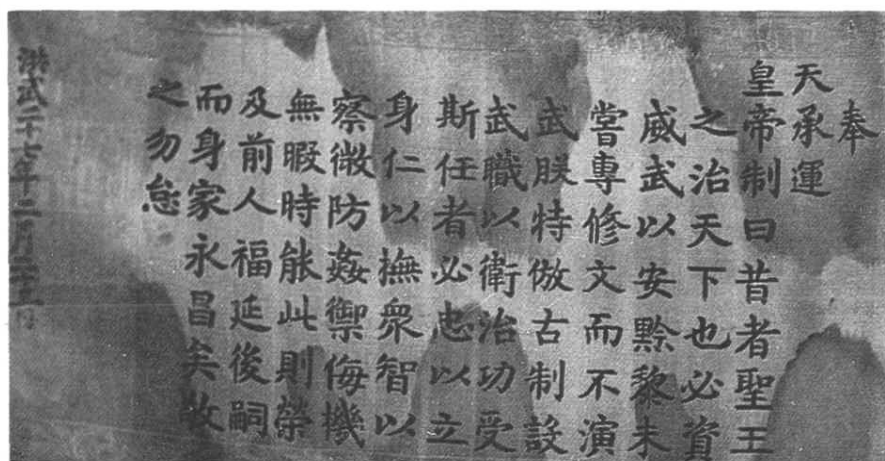 奉
天承運
皇帝制曰昔者聖王
之治天下也必資
威武以安黔黎未
嘗專修文而不演
武朕特倣古制設
武職以衛治功受
斯任者必忠以立
身仁以撫衆智以
察微防姦禦侮機
無暇時能此則榮
及前人福延後嗣
而身家永昌矣敬
之勿怠
洪武二十七年二月二十日